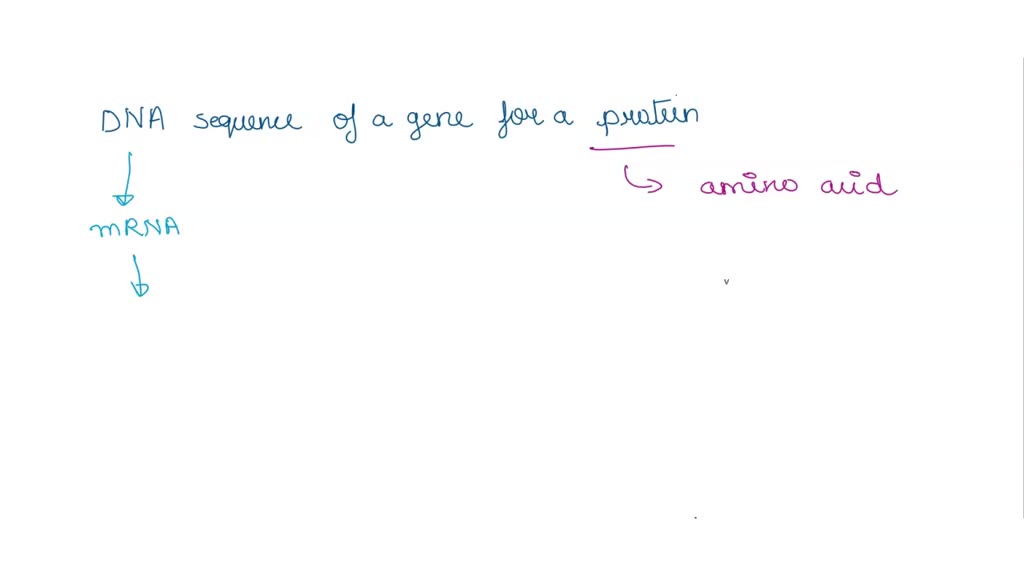 DNA sequence of a gene for a protein
amino acid
mRNA